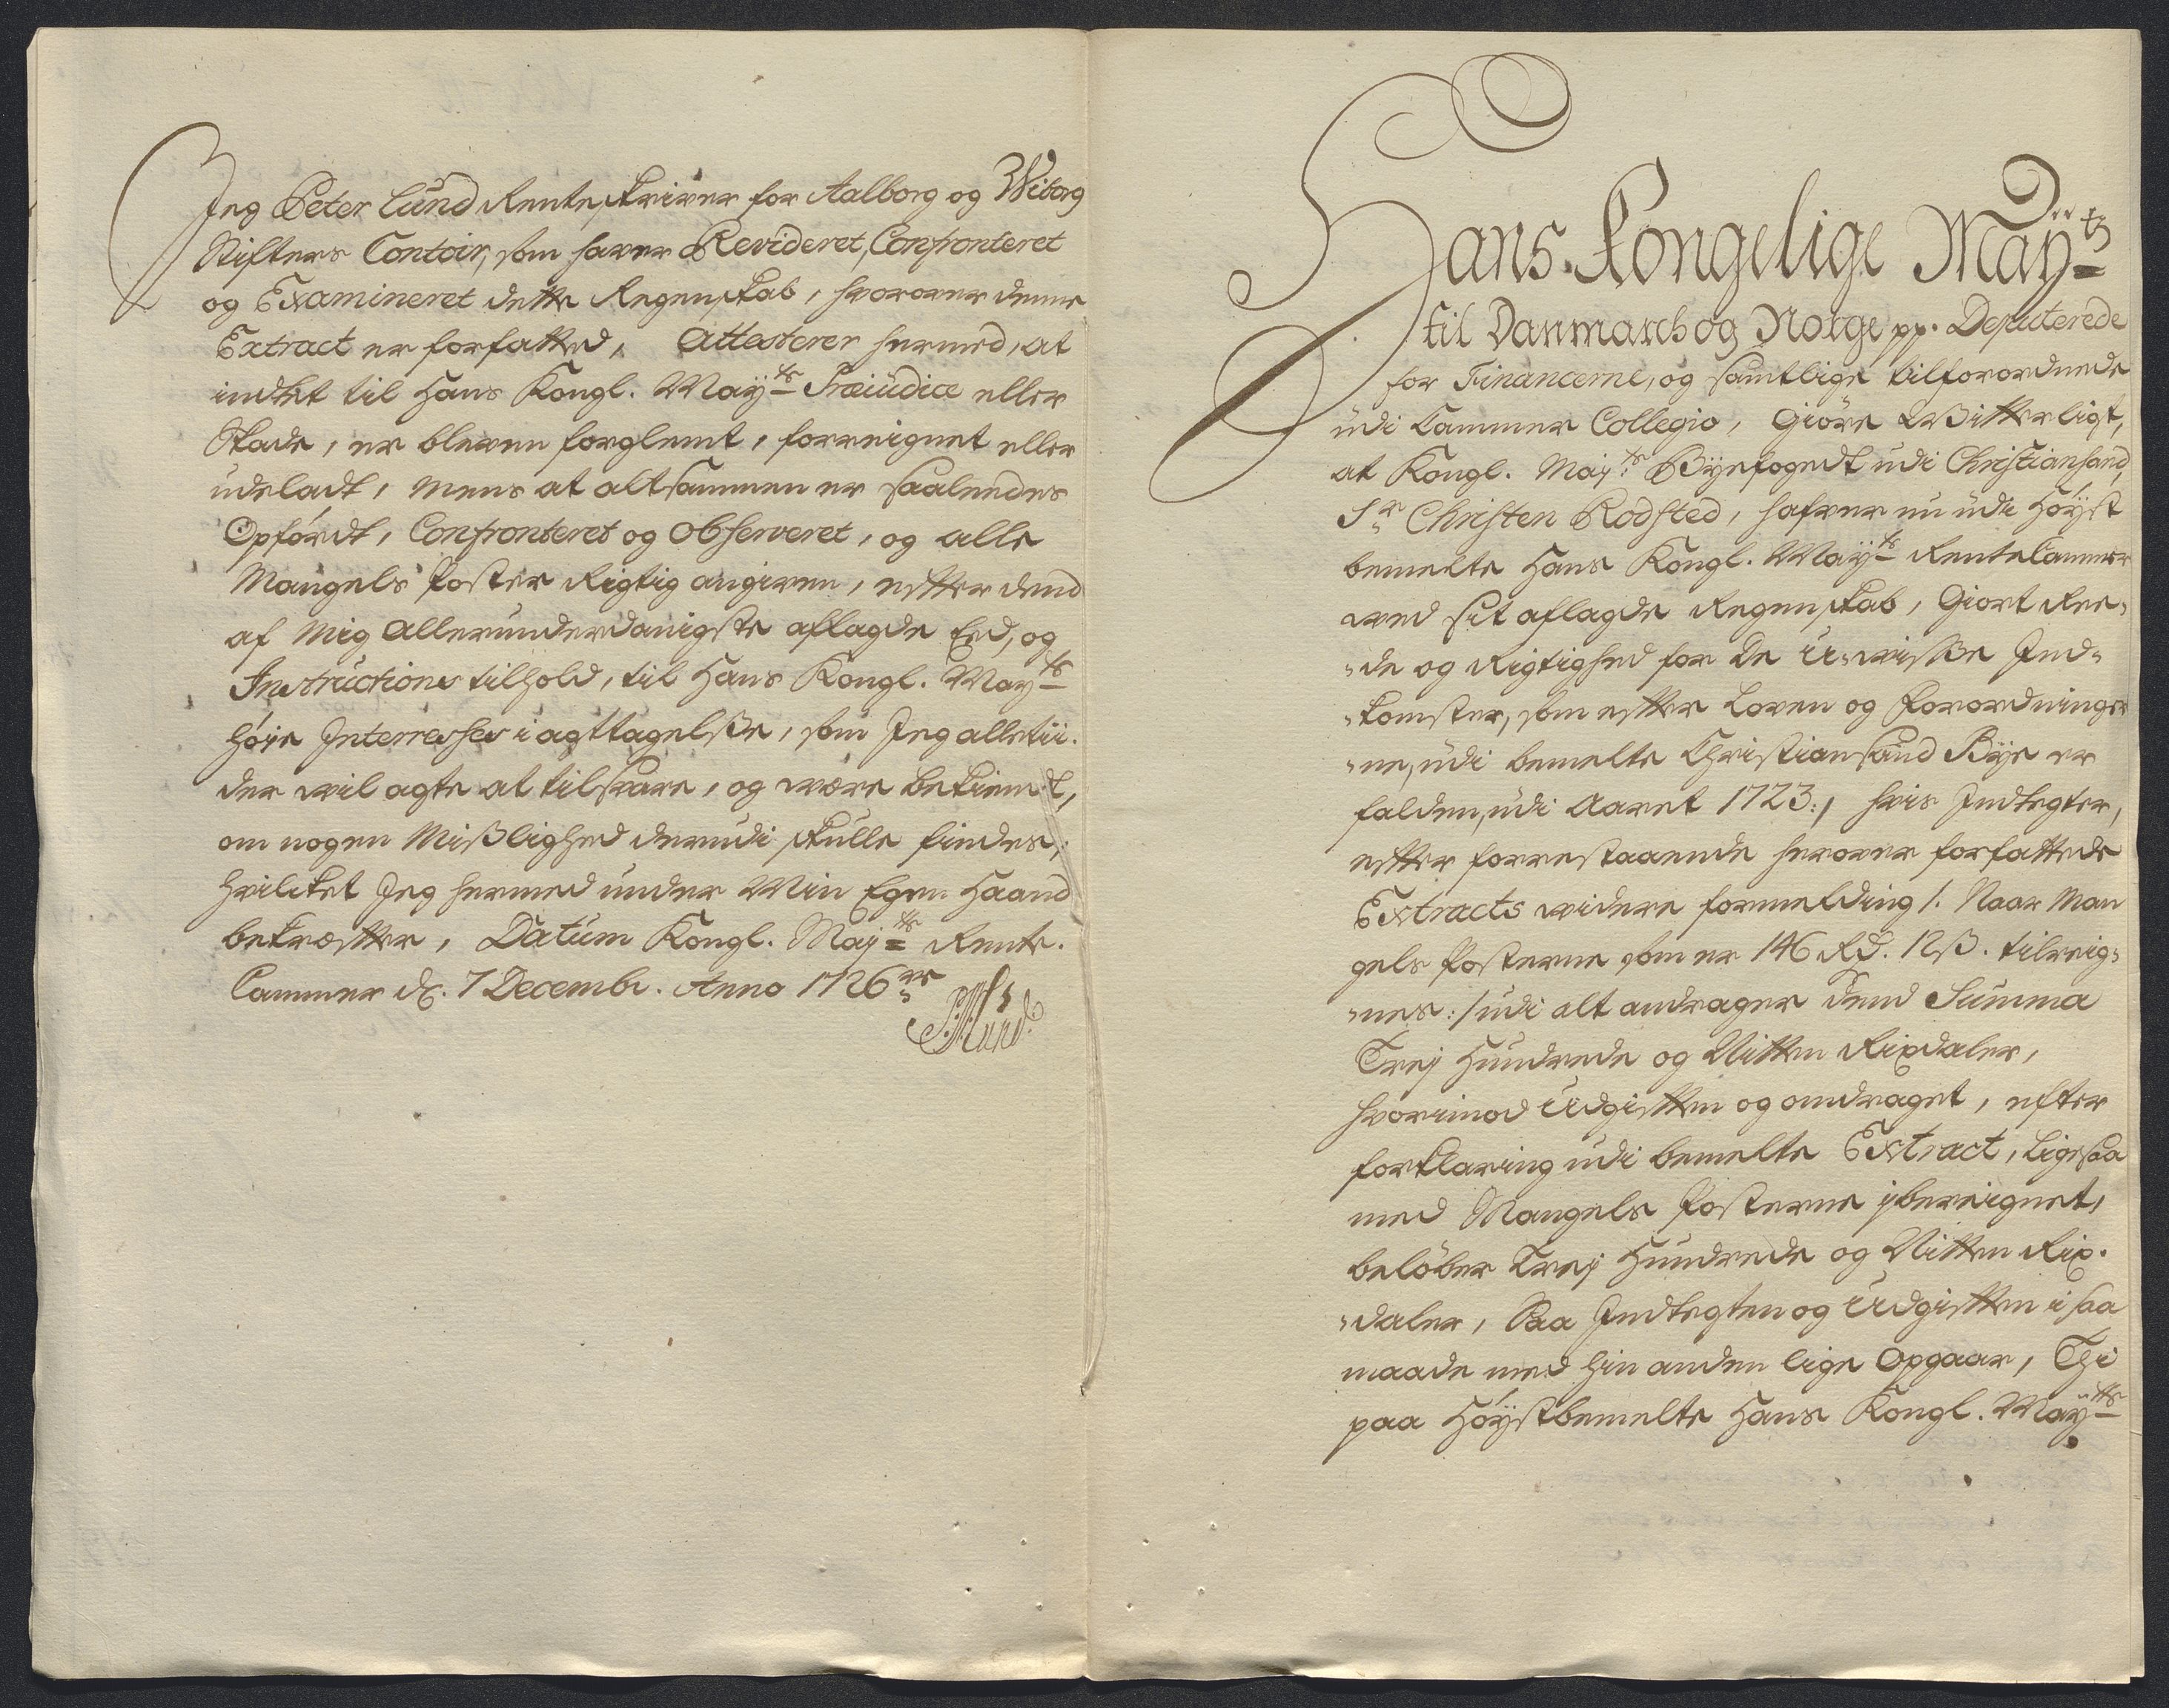 Jeg Peter Lund Renteskriver for Aalborg og Wiborg
Stifters Contoir, som haver Revideret, Confronteret
og Examineret dette Regenskab, hvorover denne
Extract er forfatted, Attesterer hermed, at
indtet til Hans Kongl. Maÿts Præiudice eller
Skade, er bleven forglemt, forreignet eller
udeladt, mens at altsammen er saaledes
Opfördt, Confronteret og Observeret, og alle
Mangels Poster Rigtig angiven, effter dend
af Mig Allerunderdanigste aflagde Eed, og
Instructions tilhold, til Hans Kongl. Mayts
höÿe Interresses i agttagelsße, som Jeg alletii-
der wil agte at tilsvare, og være bekiendt,
om nogen Mißlighed derudi skulle findes,
hvilcket Jeg hermed under Min Egen Haand
bekræffter, Datum Kongl. Maÿts Rente-
Cammer d. 7 Decembr. Anno 1726
P. Lund
Hans Kongelige Maÿts
til Danmarch og Norge pp. Deputerede
for Financerne, og samtlige tilforordnede
udi Cammer Collegio, Giöre Witterligt,
at Kongl. Maÿts Bÿefogedt udi Christiansand,
Sr Christen Rodsted, hafver nu udi Höÿst
bemelte Hans Kongl. Maÿts Rentekammer
ved sit aflagde Regenskab, Giort Ree-
-de og Rigtighed for De U-wisße Ind-
-komster, som effter Loven og Forordninger
-ne, udi bemelte Christiansand Bÿe er
falden, udi Aaret 1723:/ hvis Indtegter,
effter forrestaaende herover forfattede
Extracts widere formelding /: Naar Man
gels Posterne som er 146 Rd. 12ß. tilreig-
-nes :/ udi alt andrager dend Summa
Treÿ Hundrede og Nitten Rixdaler,
hvorimod Udgifften og andraget, efter
forklaring udi bemelte Extract, ligesaa
med Mangels Posterne ibereignet,
belöber Treÿ Hundrede og Nitten Rix-
-daler, Saa Indtegten og Udgifften i saa
maade med hin anden lige Opgaar, Thi
paa Höÿstbemelte Hans Kongl. Maÿtts